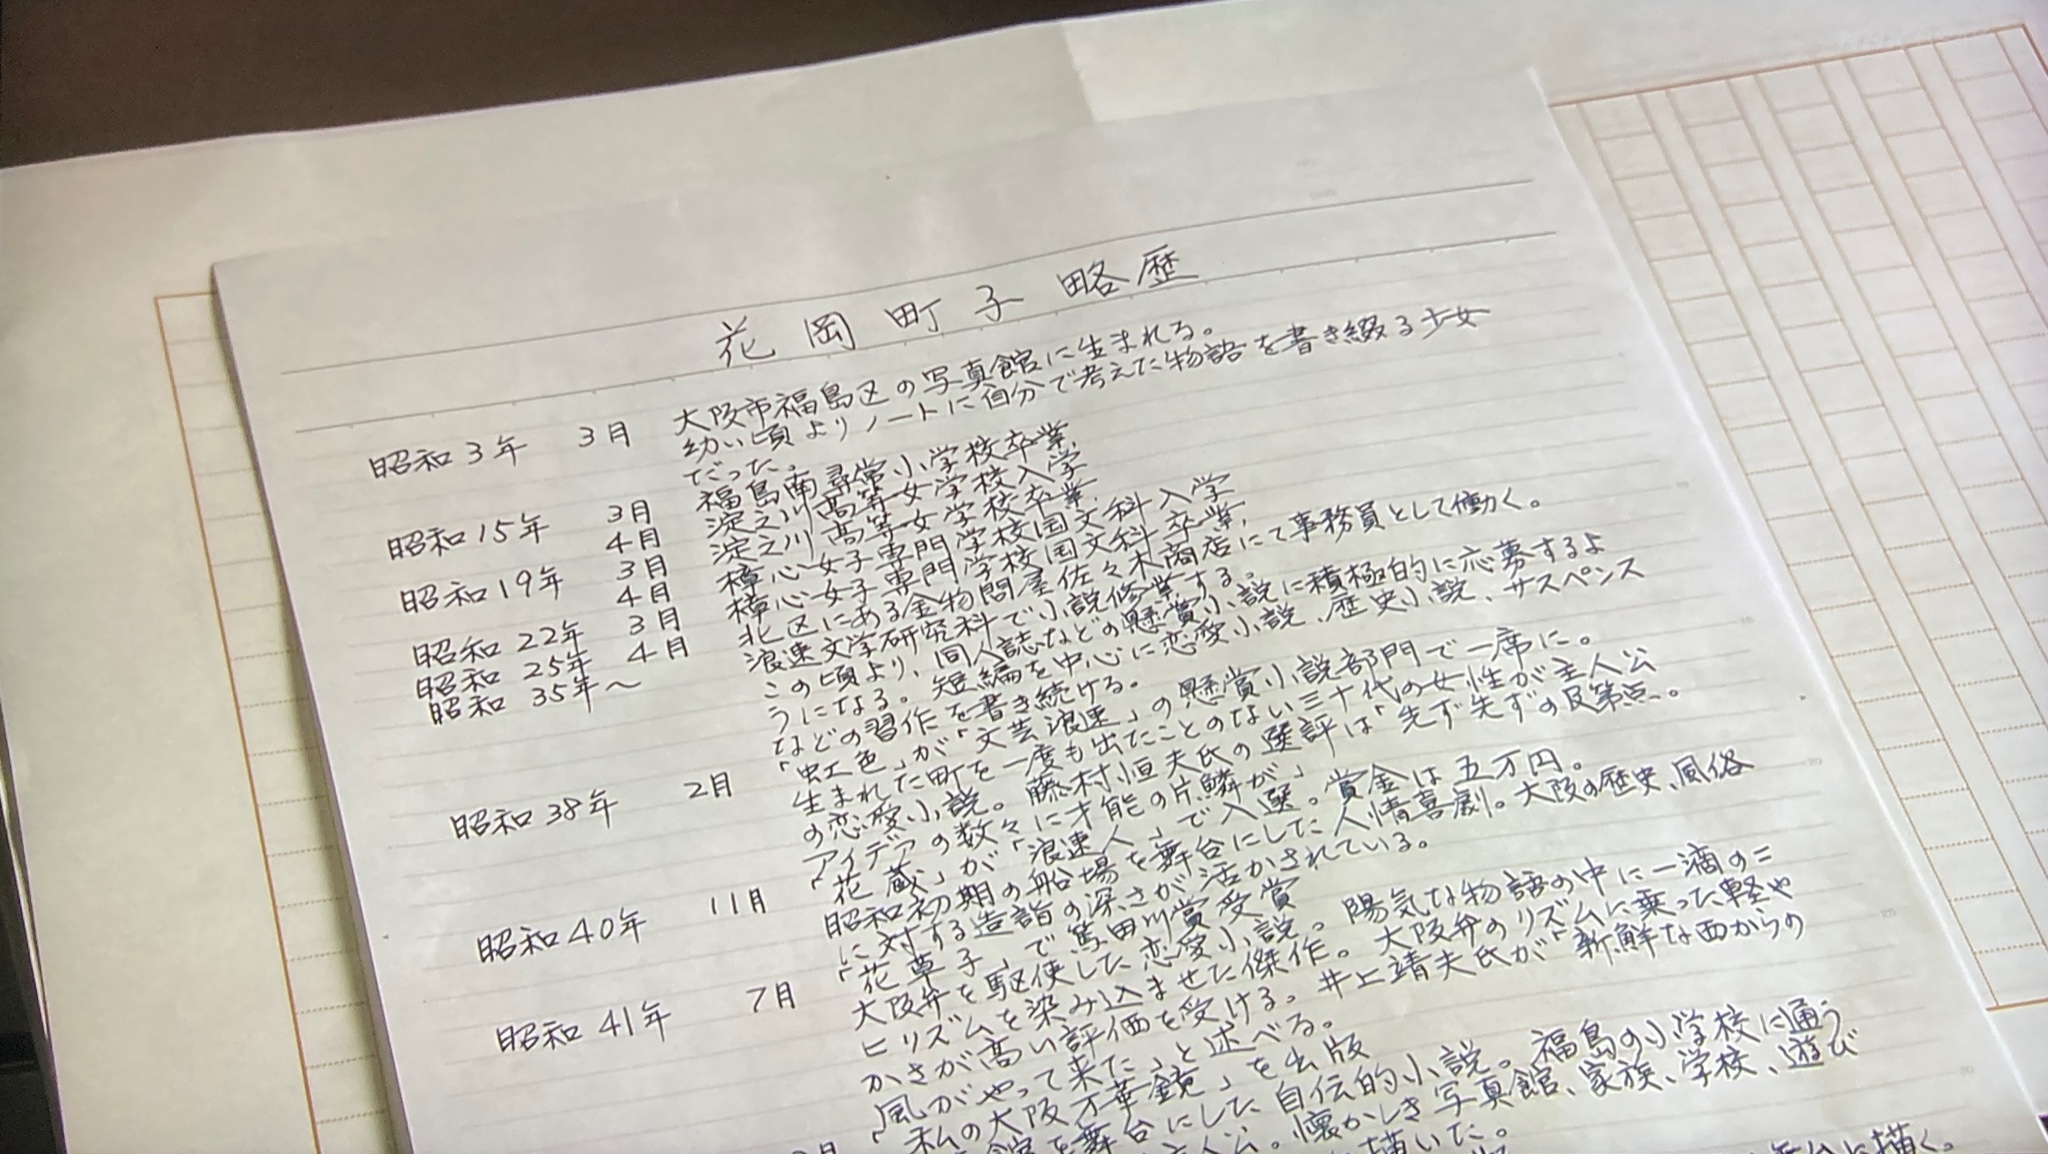 花岡町子 略歴
昭和3年 3月 大阪市福島区の写真館に生まれる。
幼い頃よりノートに自分で考えた物語を書き綴る少女
だった。
昭和15年 3月 福島南尋常小学校卒業
4月 淀之川高等女学校入学
昭和19年 3月 淀之川高等女学校卒業
4月 樟心女子専門学校国文科入学
昭和22年 3月 樟心女子専門学校国文科卒業
昭和25年 4月 北区にある金物問屋佐々木商店にて事務員として働く。
昭和35年〜 浪速文学研究科で小説修業する。
この頃より、同人誌などの懸賞小説に積極的に応募するよ
うになる。短編を中心に恋愛小説、歴史小説、サスペンス
などの習作を書き続ける。
昭和38年 2月 「虹色」が「文芸浪速」の懸賞小説部門で一席に。
生まれた町を一度も出たことのない三十代の女性が主人公
の恋愛小説。藤村恒夫氏の選評は「先ず先ずの及第点。
アイデアの数々に才能の片鱗が」
昭和40年 11月 「花蔵」が「浪速人」で入選。賞金は五万円。
昭和初期の船場を舞台にした人情喜劇。大阪の歴史、風俗
に対する造詣の深さが活かされている。
昭和41年 7月 「花草子」で篤田川賞受賞
大阪弁を駆使した恋愛小説。陽気な物語の中に一滴のニ
ヒリズムを染み込ませた傑作。大阪弁のリズムに乗った軽や
かさが高い評価を受ける。井上靖夫氏が「新鮮な西からの
風がやって来た」と述べる。
「私の大阪万華鏡」を出版
館を舞台にした自伝的小説。福島の小学校に通う
主人公。懐かしき写真館、家族、学校、遊び
描いた。
に描く。